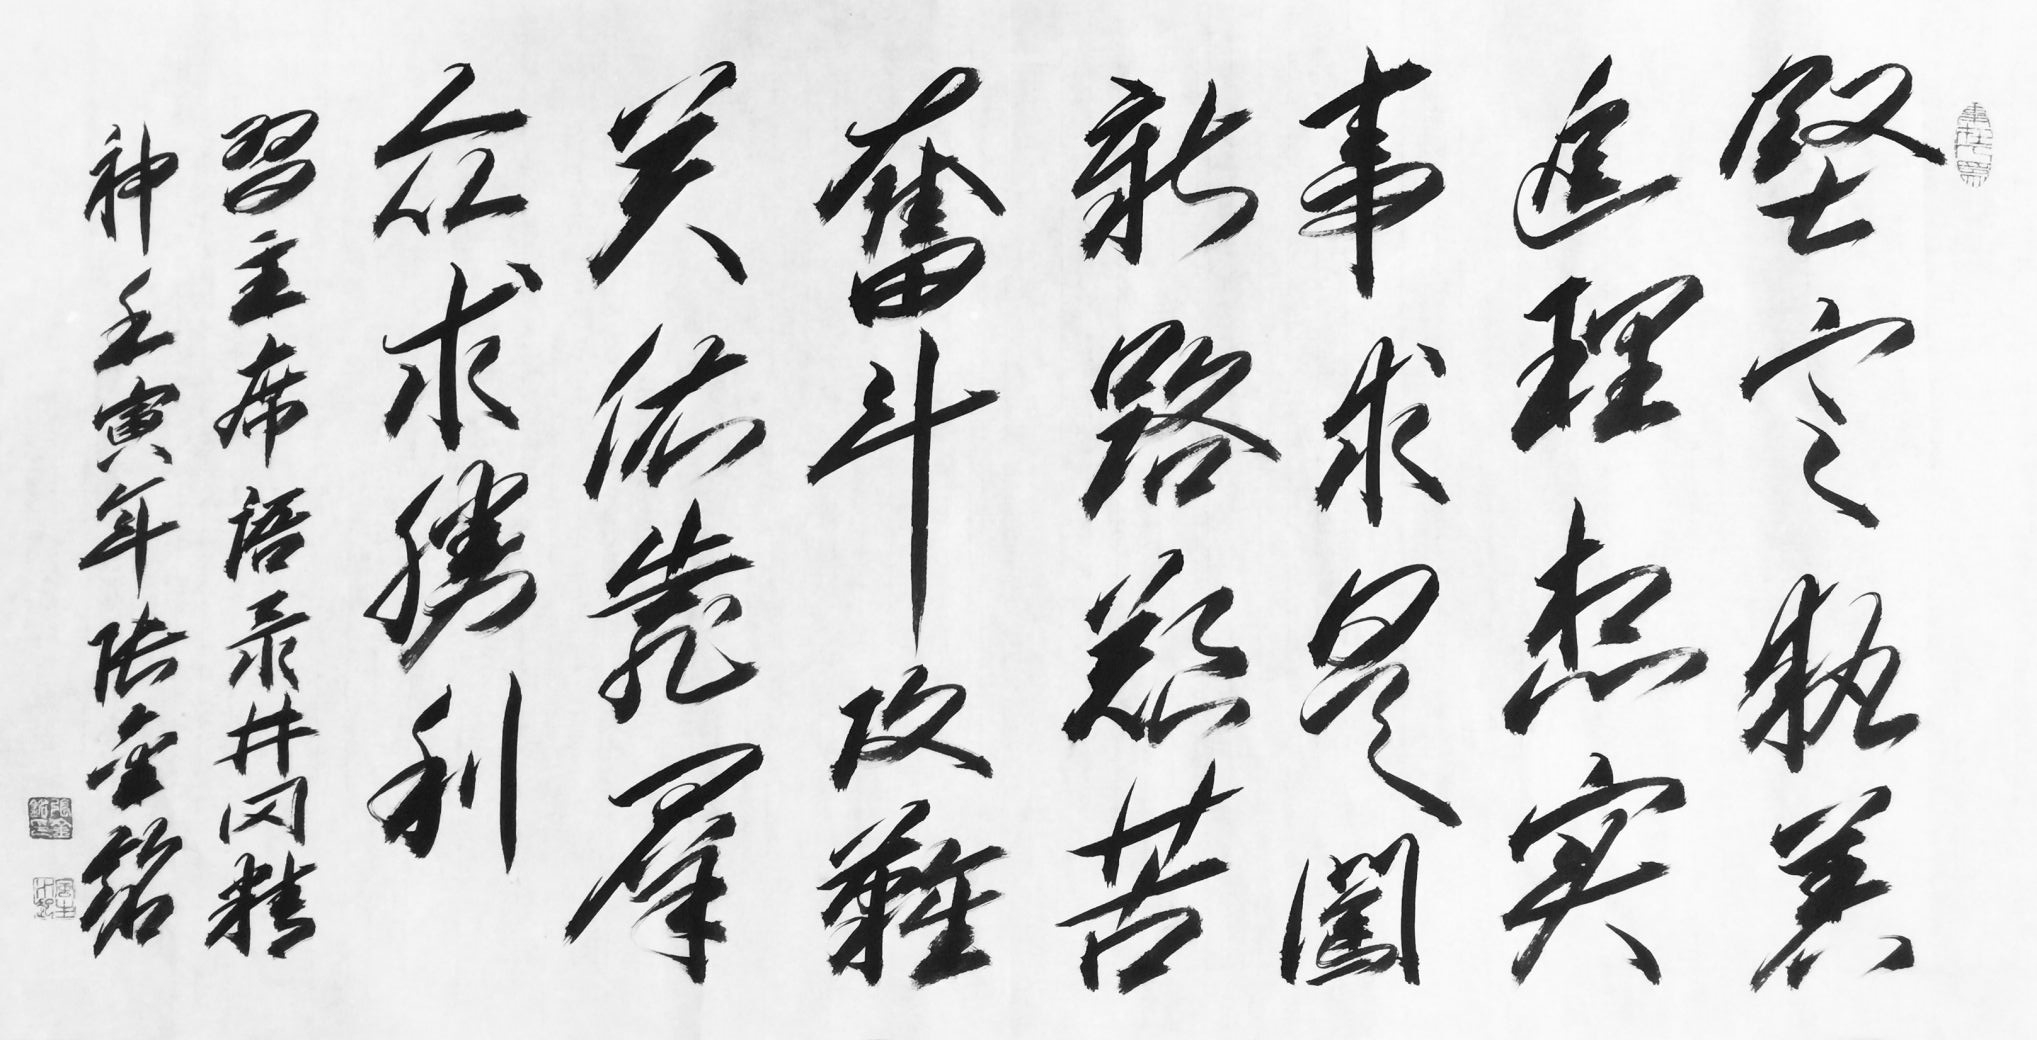 堅定執着
追理想实
事求是闖
新路艱苦
奮斗攻難
关依靠羣
众求勝利
習主席语录井冈精
神壬寅年张金銘